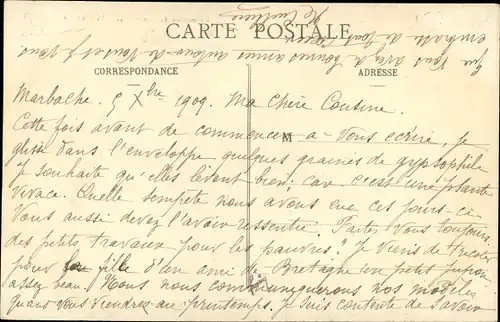 CARTE POSTALE
CORRESPONDANCE
ADRESSE
M
Marbache. 5 Xbre 1909. Ma chère Cousine.
Cette fois avant de commencer à vous écrire, je
glisse dans l'enveloppe quelques graines de gypsophile
Je souhaite qu'elles lèvent bien; car c'est une plante
vivace. Quelle tempête nous avons eue ces jours-ci
Vous aussi devez l'avoir ressentie. Faites vous toujours
des petits travaux pour les pauvres? Je viens de tricoter
pour fille d'un ami de Bretagne un petit jupon
assez beau. Nous nous communiquerons nos modèles
quand vous viendrez au printemps. Je suis contente de savoir
que vous avez de bonnes amies autour de vous et je vous
embrasse de tout cœur